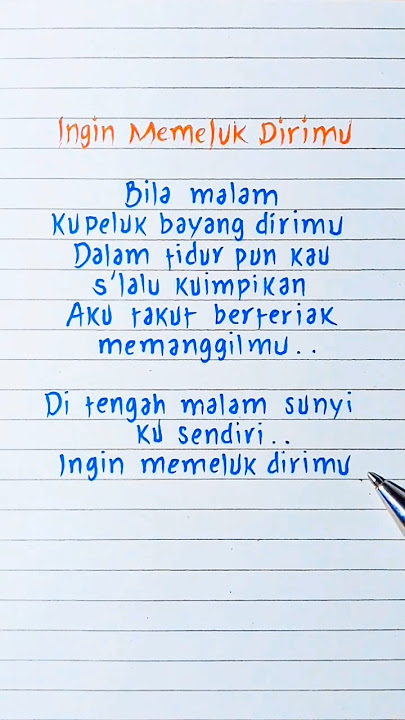 Ingin Memeluk Dirimu
Bila malam
Kupeluk bayang dirimu
Dalam tidur pun kau
s'lalu kuimpikan
Aku takut berteriak
memanggilmu..
Di tengah malam sunyi
ku sendiri..
Ingin memeluk dirimu